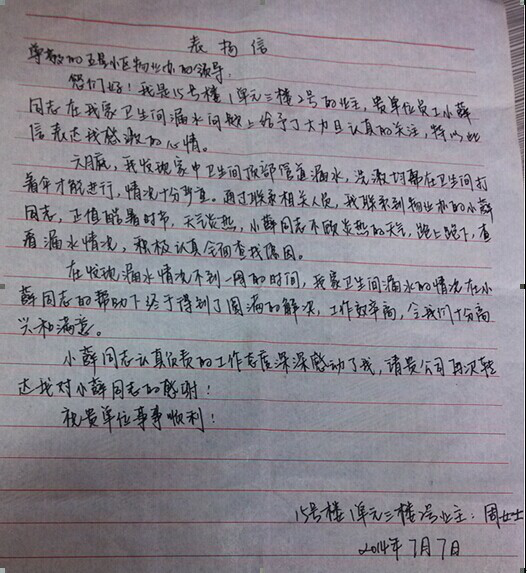 表扬信
尊敬的五号小区物业办的领导，
您们好！我是15号楼1单元三楼2号的业主，贵单位员工小薛
同志在我家卫生间漏水问题上给予了大力且认真的关注，特以此
信表达我感激的心情。
六月底，我发现家中卫生间顶部管道漏水，洗漱时都在卫生间打
着伞才能进行，情况十分窘。通过联系相关人员，我联系到物业办的小薛
同志，正值酷暑时节，天气炎热，小薛同志不顾炎热的天气，跑上跑下，查
看漏水情况，积极认真全面查找原因。
在发现漏水情况不到一周的时间，我家卫生间漏水的情况在小
薛同志的帮助下终于得到了圆满的解决，工作效率高，令我们十分高
兴和满意。
小薛同志认真负责的工作态度深深感动了我，请贵公司再次转
达我对小薛同志的感谢！
祝贵单位事事顺利！
15号楼1单元三楼2号业主：周女士
2014年7月7日